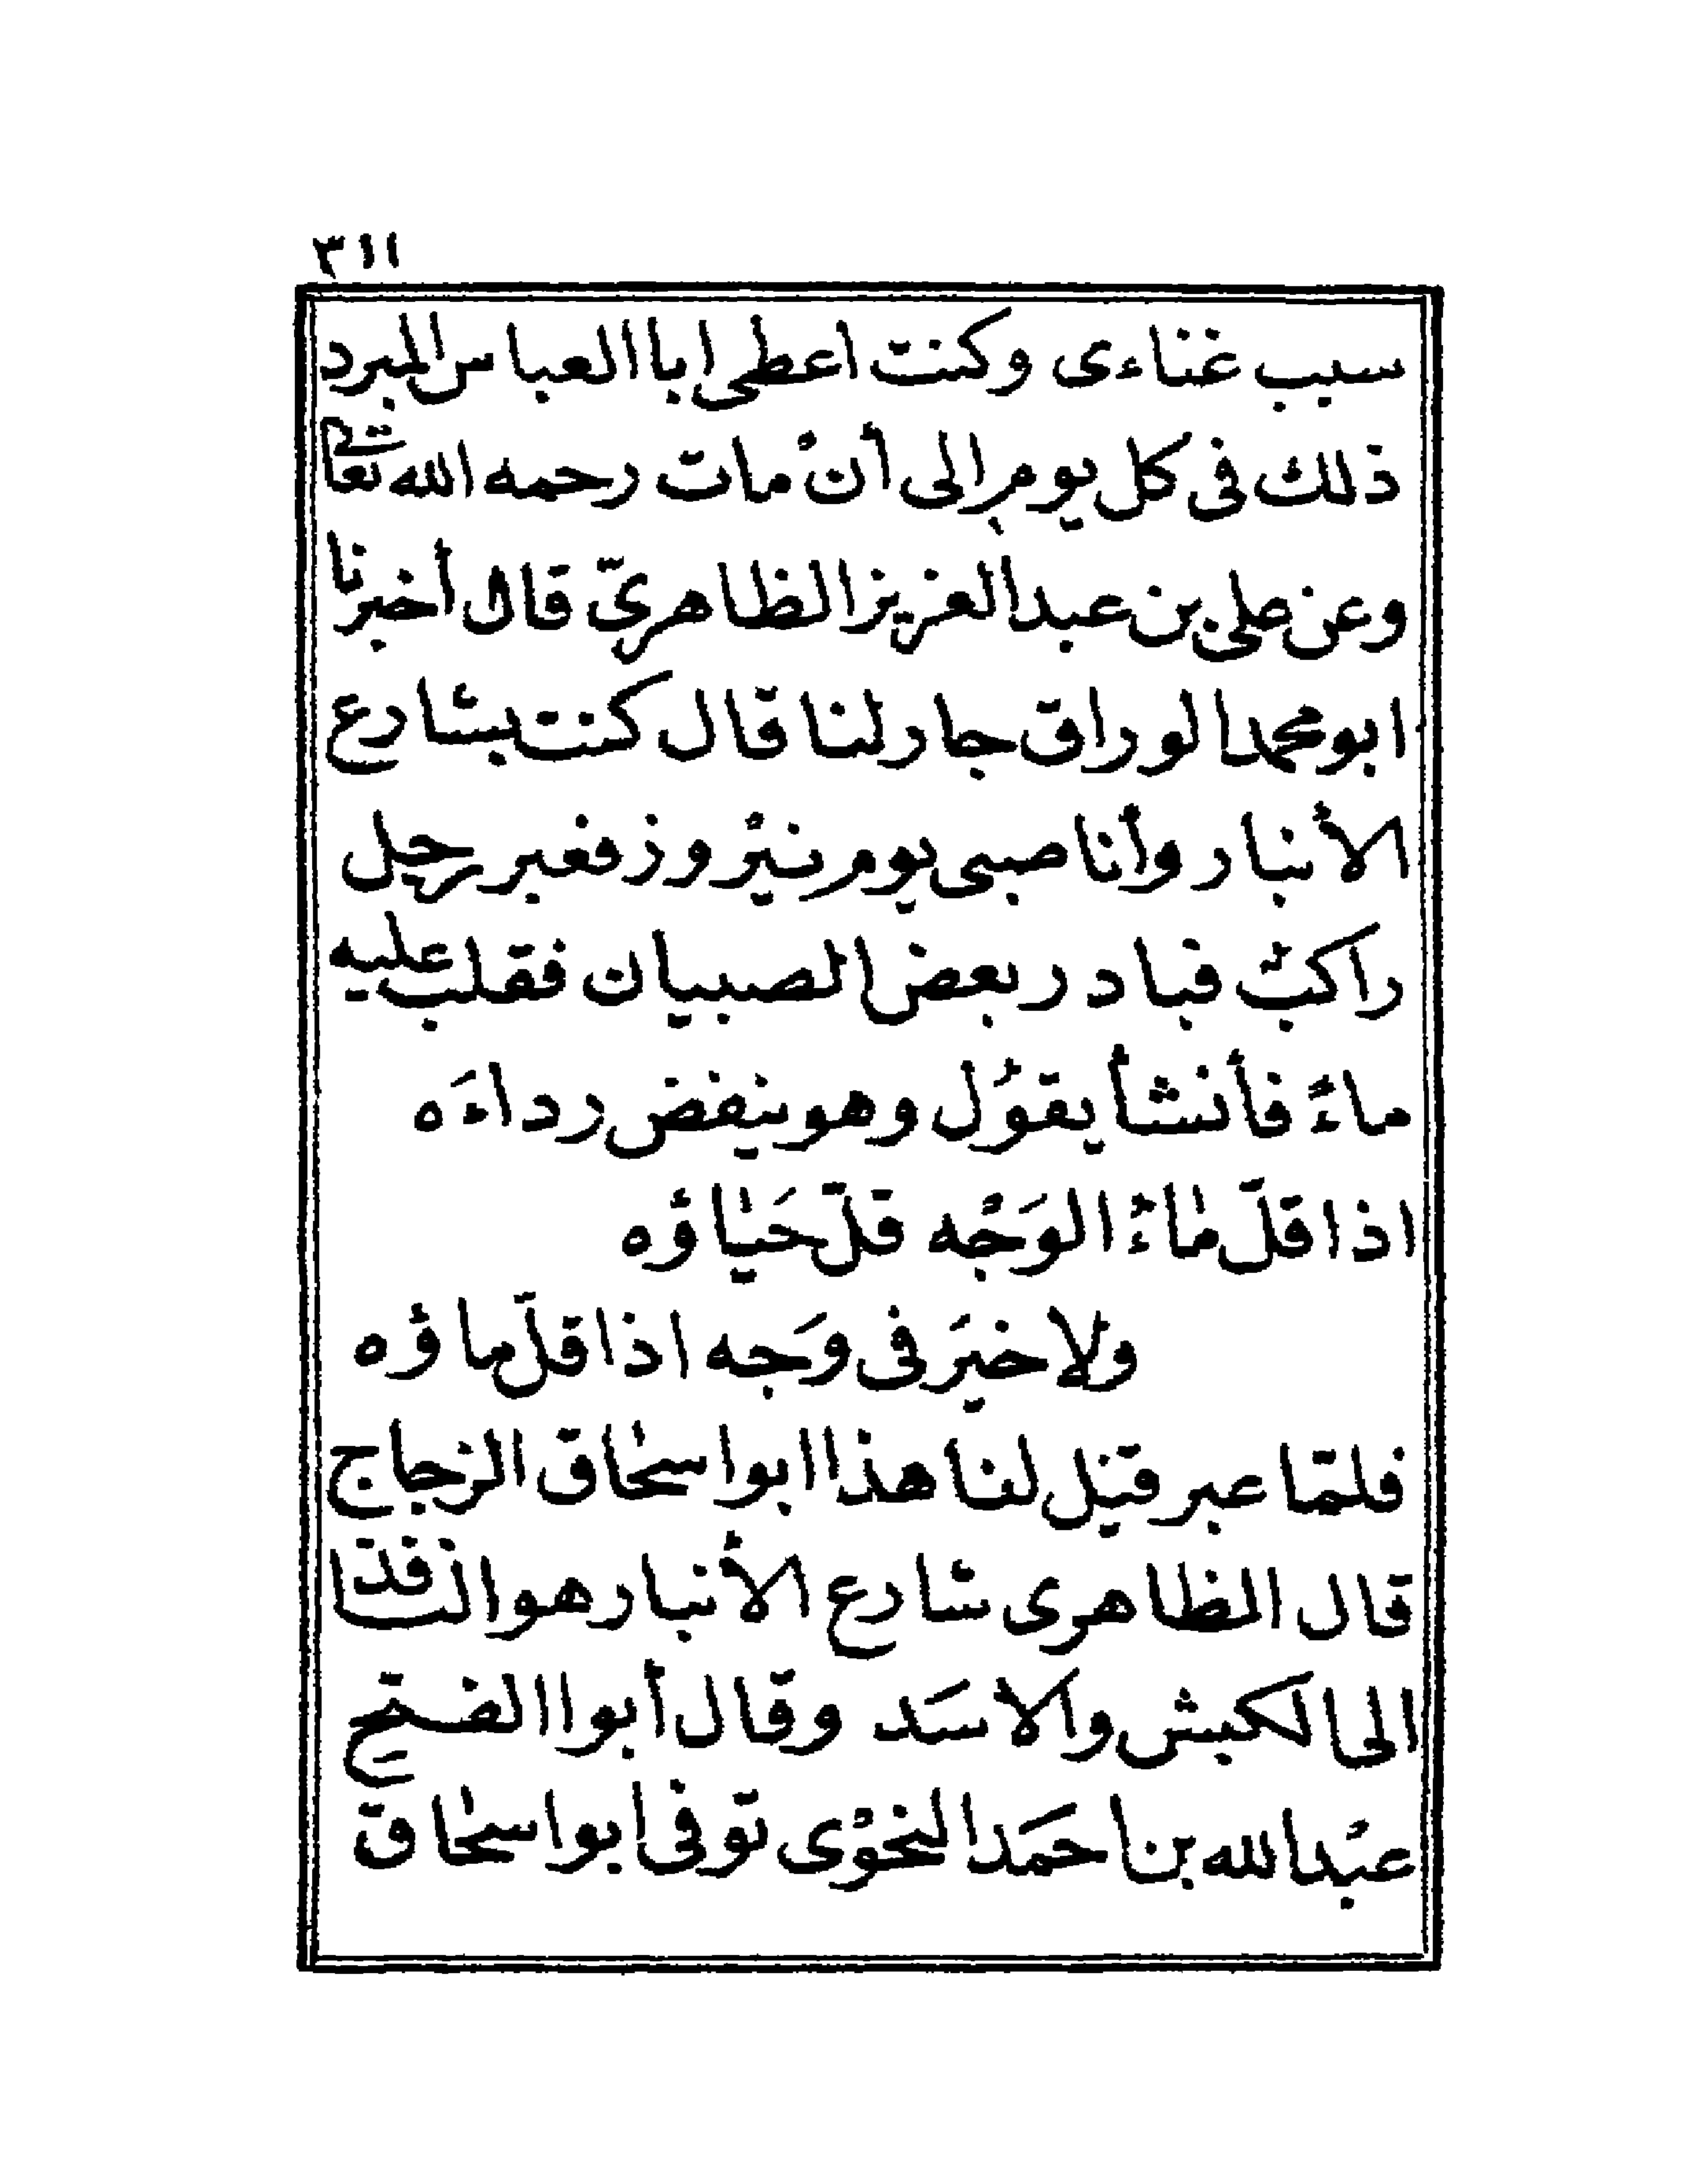 ٣١١
سبب غناءى وكنت اعطى ابا العباس المبرد
ذلك فى كل يوم الى أنْ مات رحمه الله تعالى
وعن على بن عبد العزيز الظاهريّ قال أخبرنا
ابو محمد الوراق جار لنا قال كنت بشارع
الأنبار وأنا صبى يوم نيْروز فعبر رجل
راكبٌ فبادر بعض الصبيان فقلب عليه
ماءً فأنشأ يقوُل وهو ينفض رداءَه
اذا قلّ ماءُ الوَجْه قلّ حَياؤه
ولا خيَر فى وَجه اذا قلّ ماؤه
فلمّا عبر قيل لنا هذا ابو اسحاق الزجاج
قال الظاهرى شارع الأنبار هو النافذ
الى الكبش والاسَد وقال أبو الفتح
عبْد الله بن احمَد النحوْى توفى ابو اسحاق